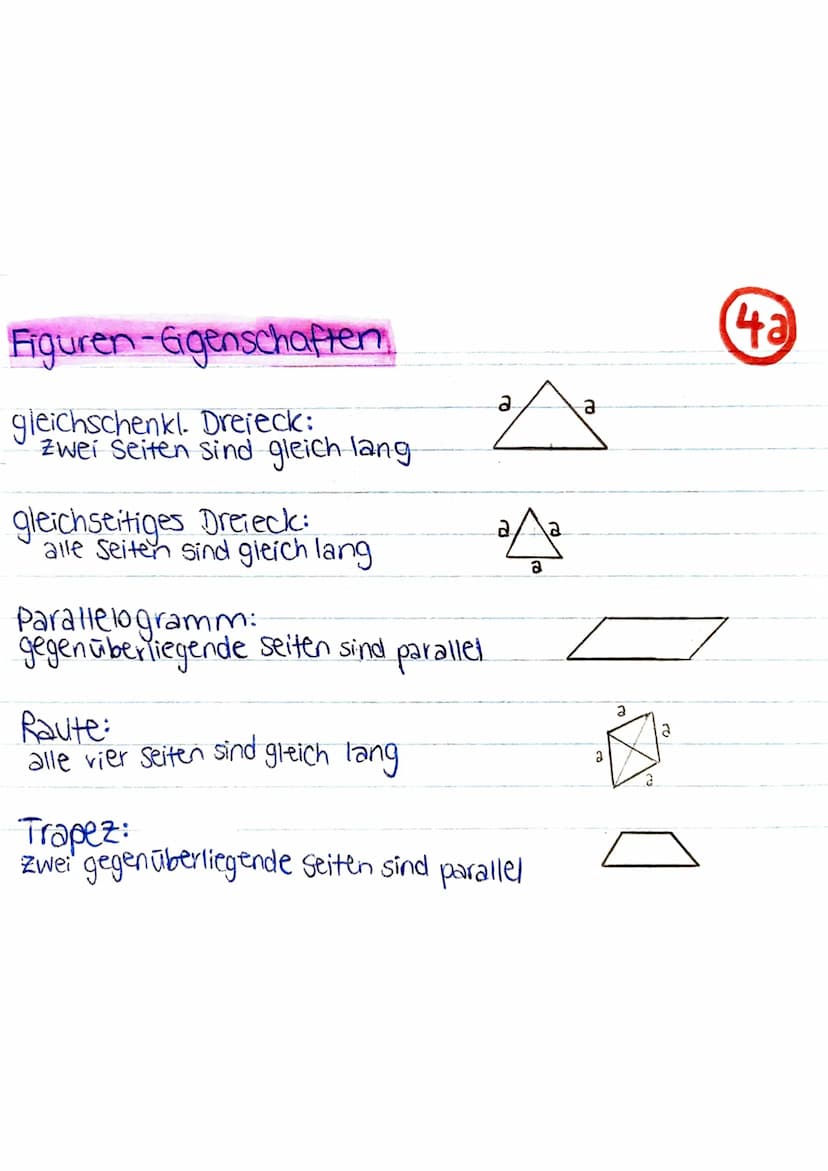 4a
Figuren-Eigenschaften
gleichschenkl. Dreieck:
zwei Seiten sind gleich lang
a a
gleichseitiges Dreieck:
alle Seiten sind gleich lang
a a
a
Parallelogramm:
gegenüberliegende Seiten sind parallel
Raute:
alle vier Seiten sind gleich lang
a
a
a
a
Trapez:
zwei gegenüberliegende Seiten sind parallel